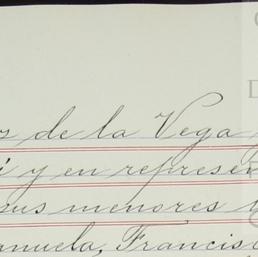 de la Vega
y en represen
sus menores
anuela, Francisc